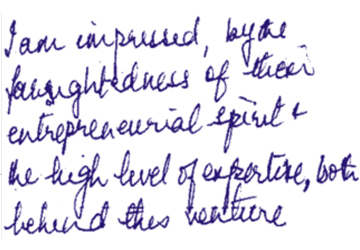 I am impressed, by the
farsightedness of their
entrepreneurial spirit +
the high level of expertise, both
behind this venture